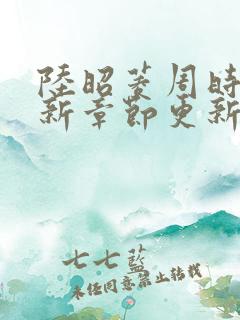 陸昭菱周時
新章節更新
七七藍
未經同意禁止轉載